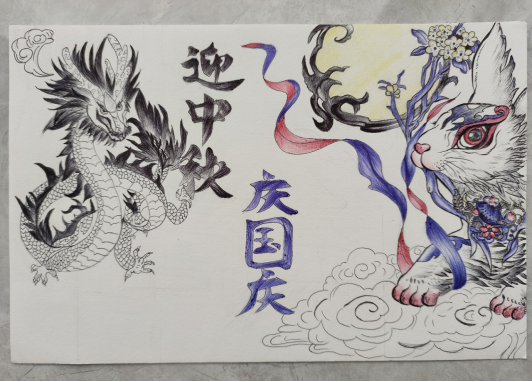 迎中秋
庆国庆